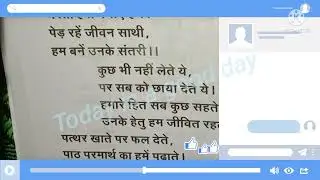 पेड़ रहें जीवन साथी,
हम बनें उनके संतरी।।
कुछ भी नहीं लेते ये,
पर सब को छाया देते ये।
हमारे हित सब कुछ सहते
उनके हेतु हम जीवित रह
पत्थर खाते पर फल देते,
पाठ परमार्थ का हमें पढ़ाते।
day